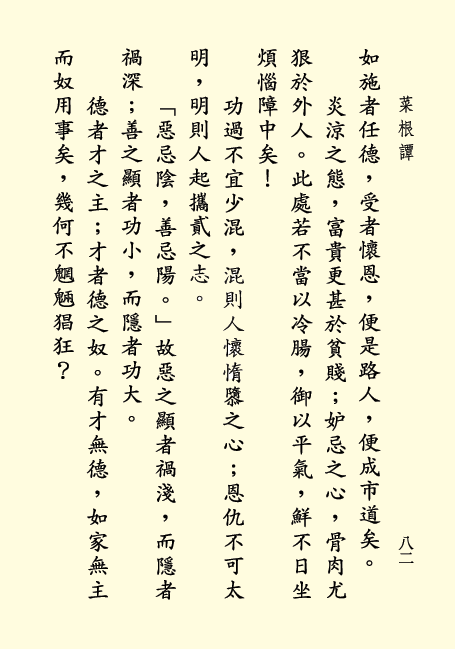 菜根譚
八二
如施者任德，受者懷恩，便是路人，便成市道矣。
炎涼之態，富貴更甚於貧賤；妒忌之心，骨肉尤
狠於外人。此處若不當以冷腸，御以平氣，鮮不日坐
煩惱障中矣！
功過不宜少混，混則人懷惰隳之心；恩仇不可太
明，明則人起攜貳之志。
「惡忌陰，善忌陽。」故惡之顯者禍淺，而隱者
禍深；善之顯者功小，而隱者功大。
德者才之主；才者德之奴。有才無德，如家無主
而奴用事矣，幾何不魍魎猖狂？